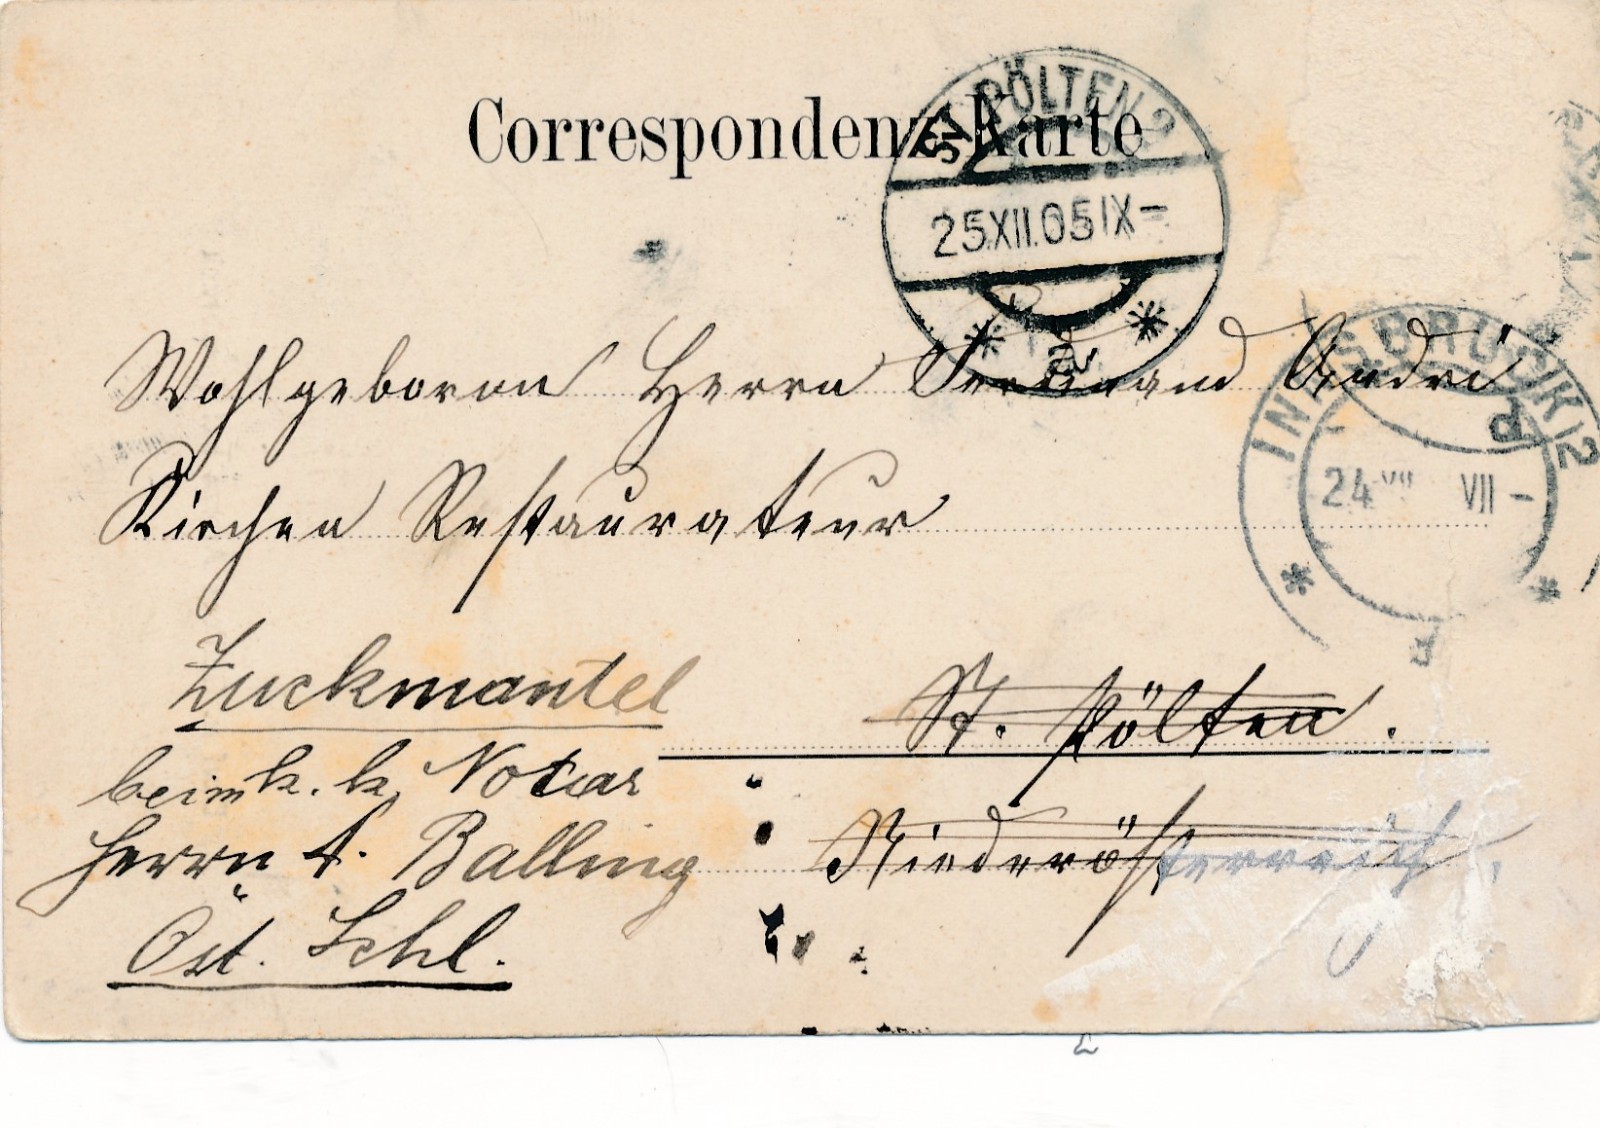 Correspondenz-Karte
ST. PÖLTEN 2
25.XII.05 IX-
* a *
INNSBRUCK 2
d
24 VII-
* *
Wohlgeboren Herrn Ferdinand Andri
Kirchen Restaurateur
St. Pölten.
Niederösterreich
Zuckmantel
beim k. k. Notar
Herrn A. Balling
Öst. Schl.